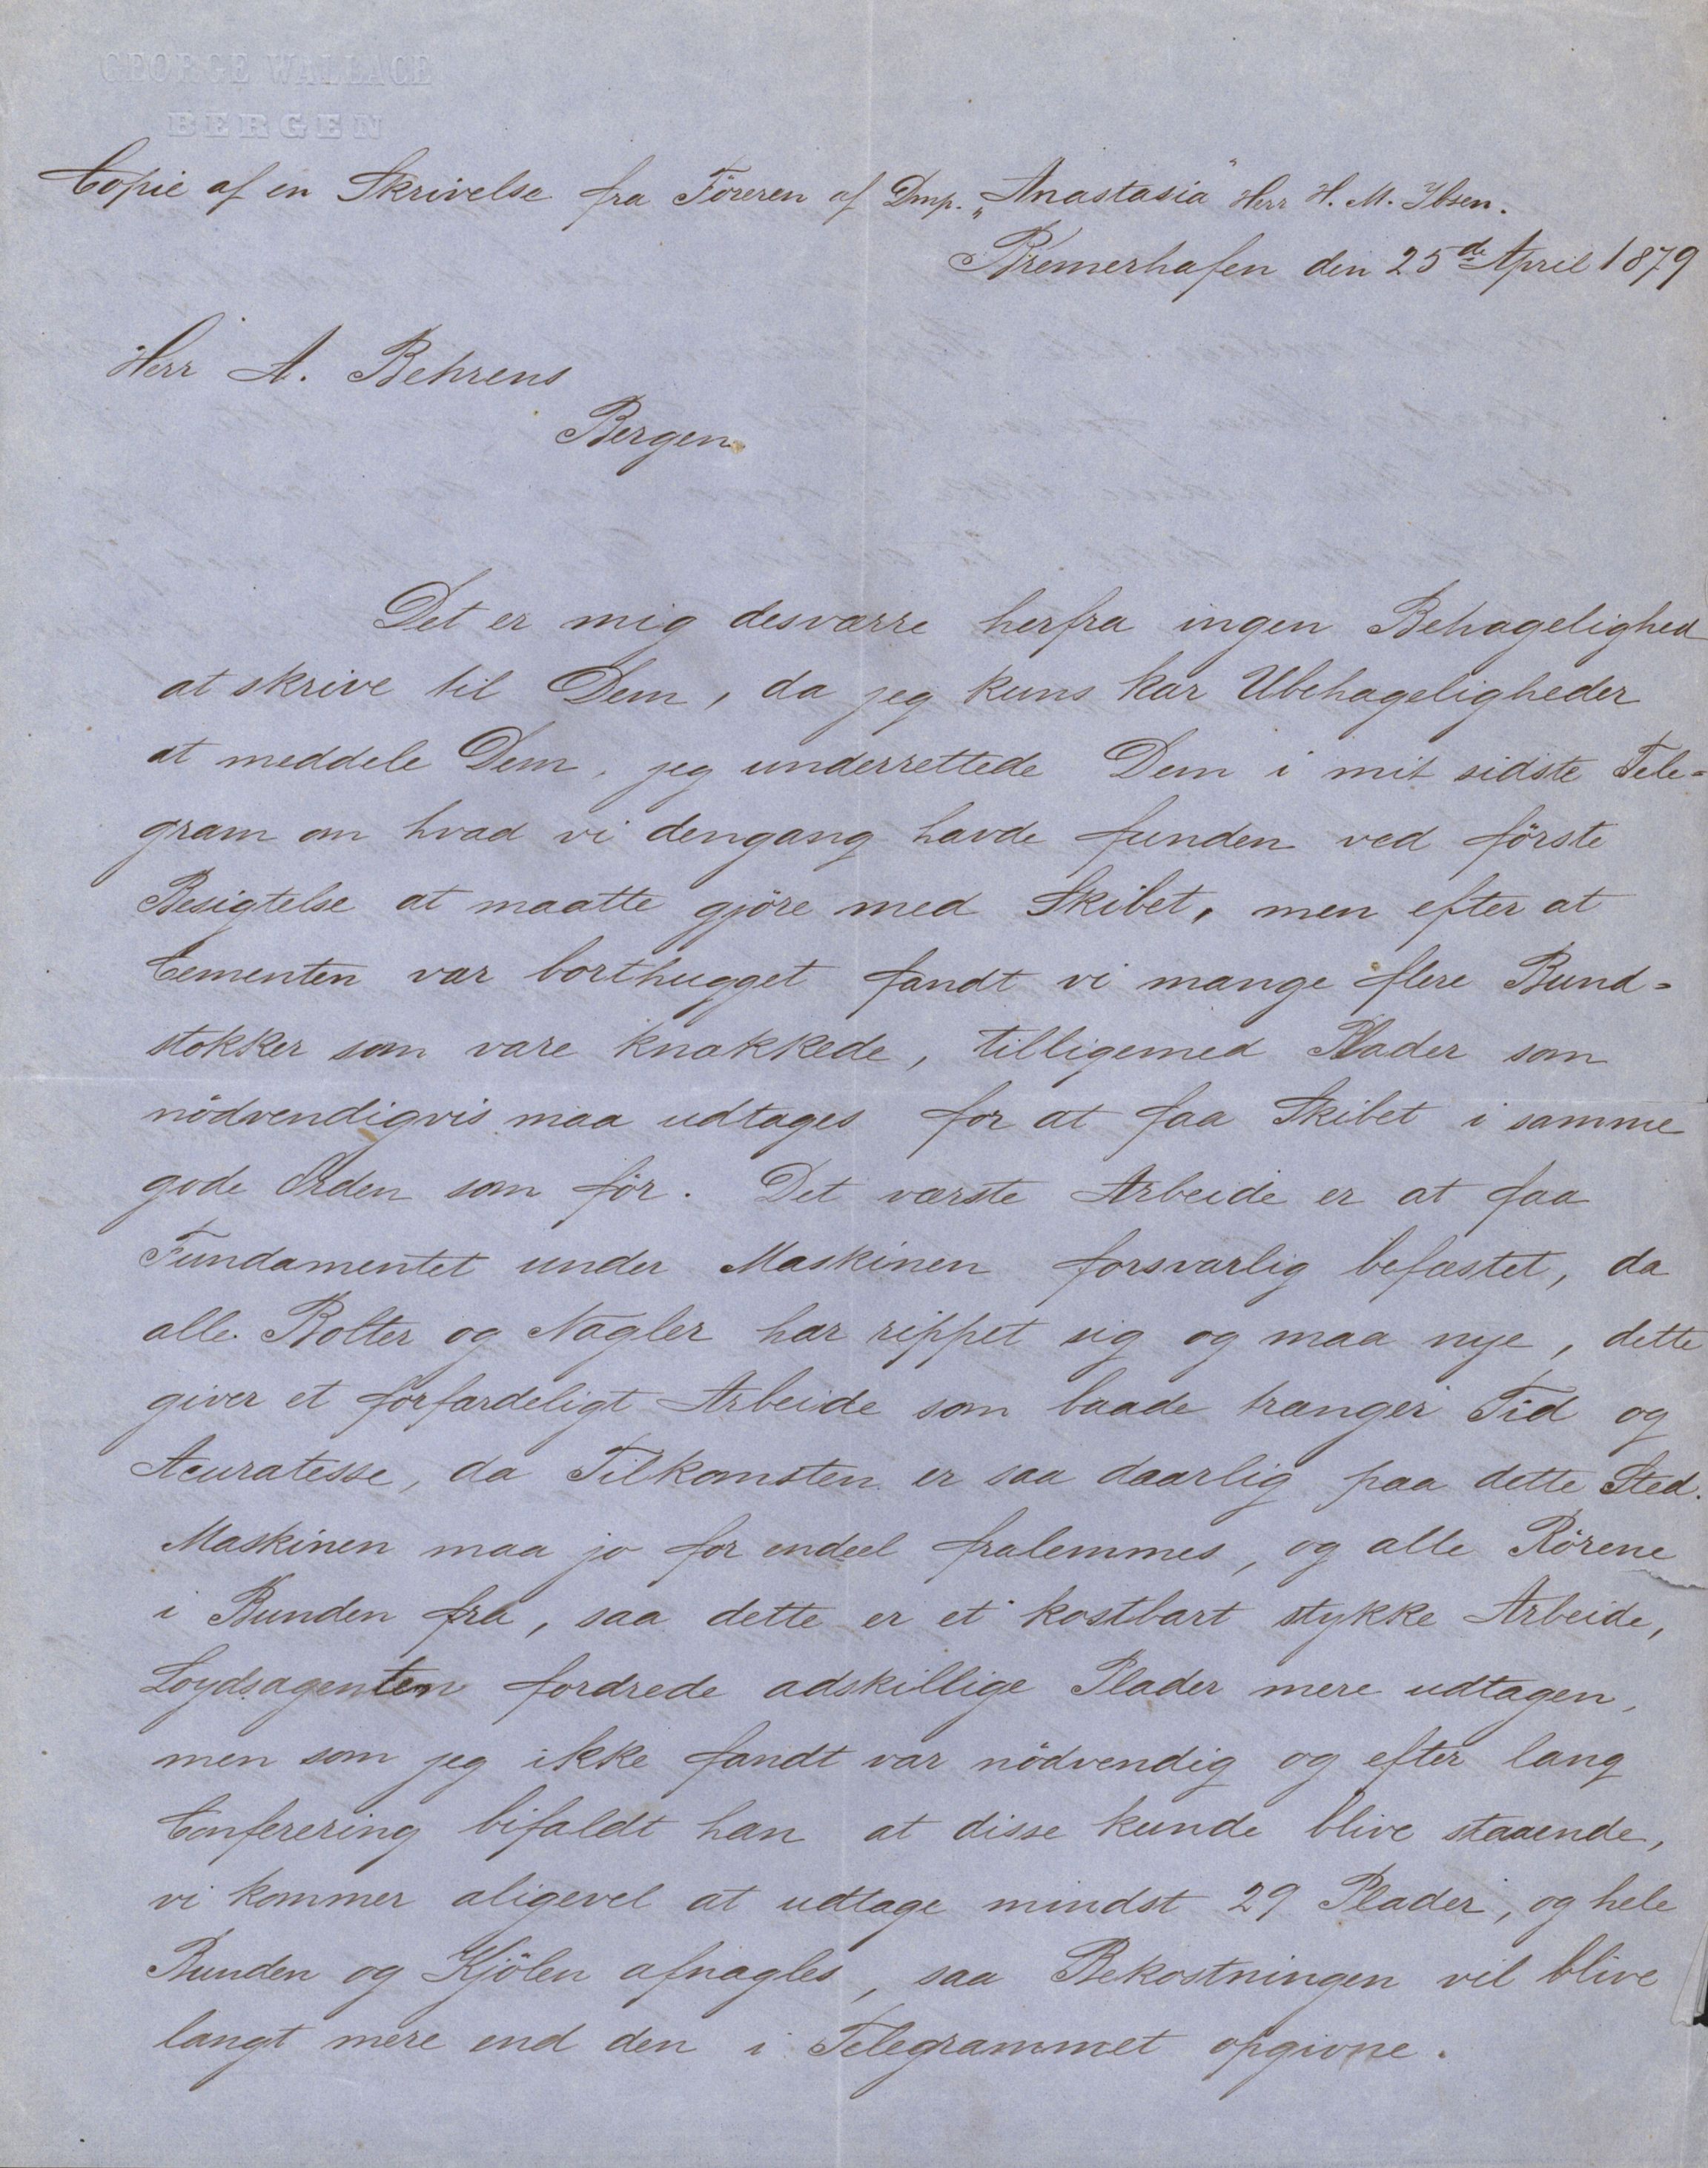 GEORGE WALLACE
BERGEN
Copie af en Skrivelse fra Föreren af Dmp. „Anastasia" Herr H. M. Ibsen.
Bremerhafen den 25de April 1879
Herr A. Behrens
Bergen
Det er mig desværre herfra ingen Behagelighed
at skrive til Dem, da jeg kuns har Ubehageligheder
at meddele Dem, jeg underrettede Dem i mit sidste Tele=
gram om hvad vi dengang havde funden ved förste
Besigtelse at maatte gjöre med Skibet, men efter at
Cementen var borthugget fandt vi mange flere Bund=
stokker som vare knækkede, tilligemed Plader som
nödvendigvis maa udtages for at faa Skibet i samme
gode Orden som för. Det værste Arbeide er at faa
Fundamentet under Maskinen forsvarlig befæstet, da
alle Bolter og Nagler har rippet sig og maa nye, dette
giver et forfærdeligt Arbeide som baade trænger Tid og
Acuratesse, da Tilkomsten er saa daarlig paa dette Sted.
Maskinen maa jo for endeel fralemmes, og alle Rörene
i Bunden fra, saa dette er et kostbart stykke Arbeide,
Loydsagenten fordrede adskillige Plader mere udtagen,
men som jeg ikke fandt var nödvendig og efter lang
Conferering bifaldt han at disse kunde blive staaende,
vi kommer aligevel at udtage mindst 29 Plader, og hele
Bunden og Kjölen afnagles, saa Bekostningen vil blive
langt mere end den i Telegrammet opgivne.